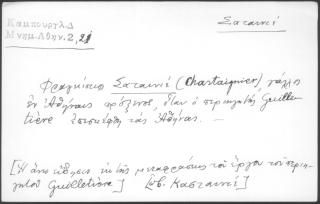 Καμπούρογλ Δ
Μνημ. Αθην. 2, 21
Σαταινιέ
Φραγκίσκος Σαταινιέ (Chastaignier), γάλλος
ἐν Ἀθήναις πρόξενος, ὅταν ὁ περιηγητὴς Guille-
tière ἐπισκέφθη τὰς Ἀθήνας. —
[Ἡ ἄνω εἴδησις ἐκ τῆς μεταφράσεως τοῦ ἔργου τοῦ περιη-
γητοῦ Guilletière] [πβ. Καστανιέ]